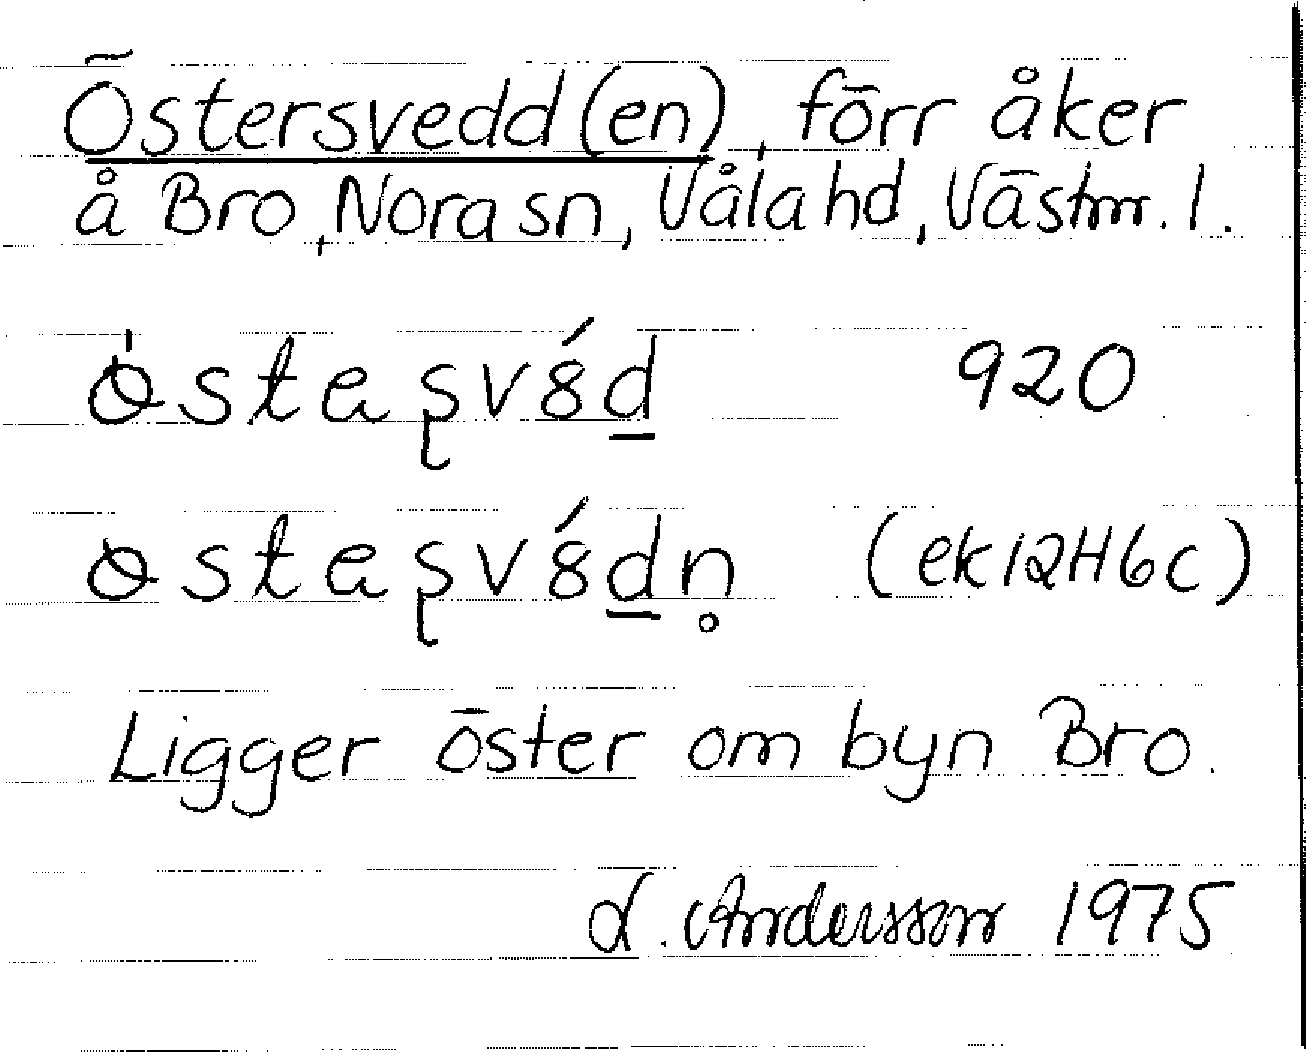 Östersvedd(en), förr åker
å Bro, Nora sn, Våla hd, Västm. l.
920
(ek 12H6c)
Ligger öster om byn Bro.
L. Andersson 1975